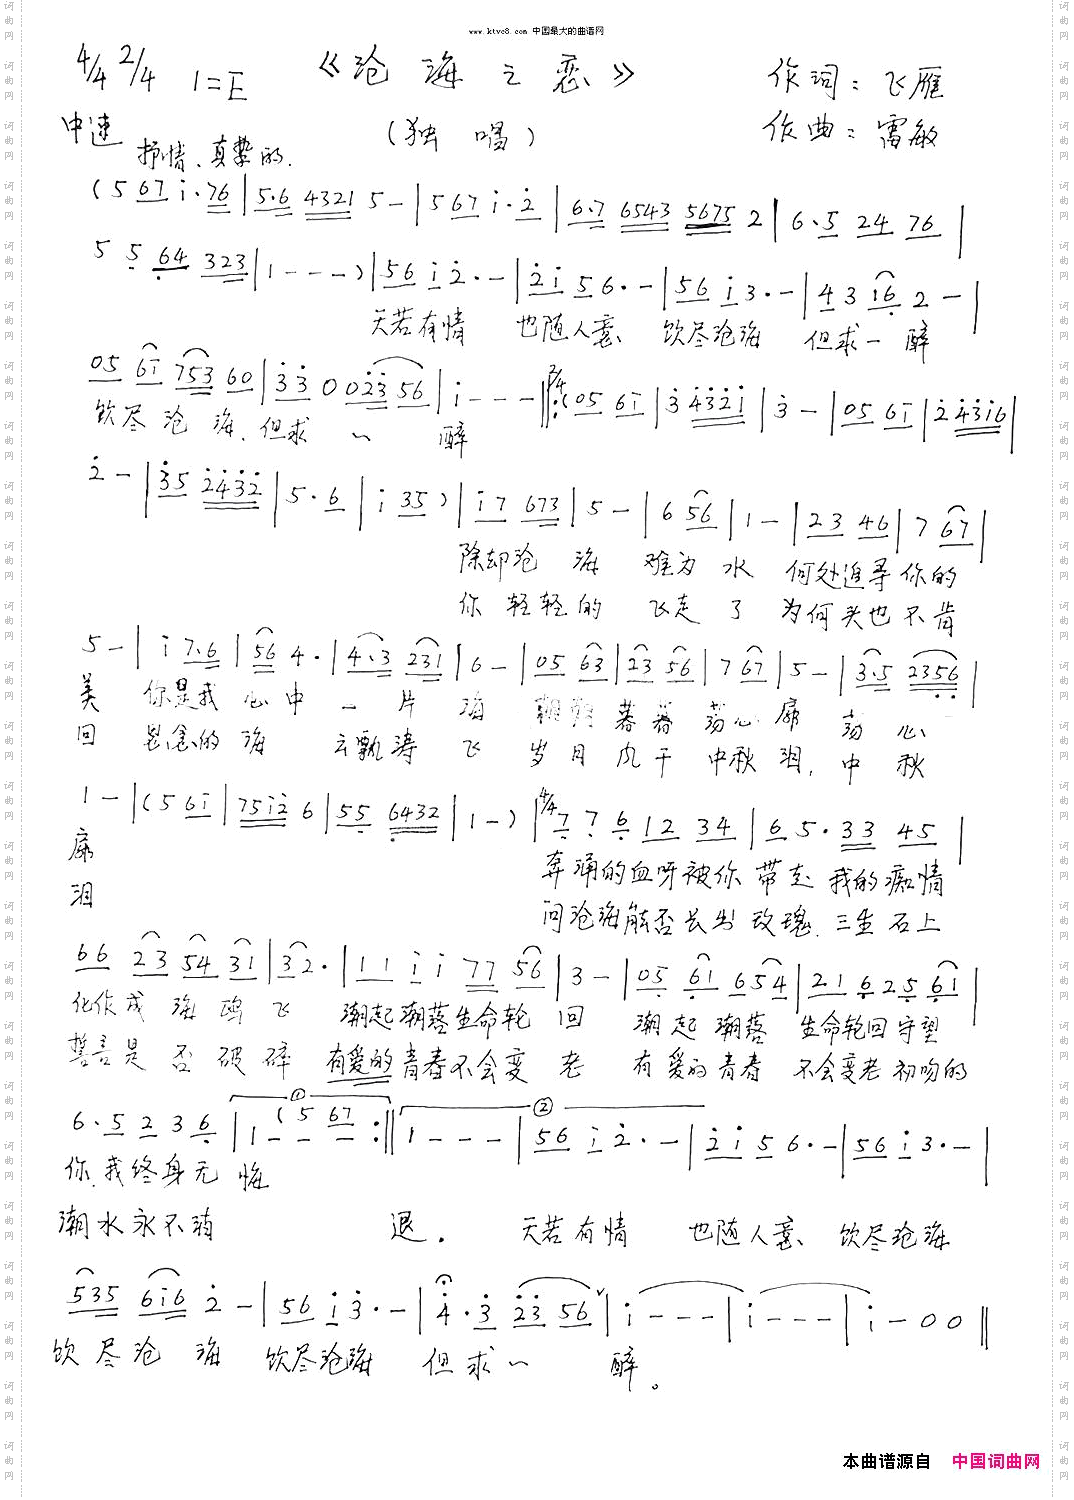 www.ktvc8.com 中国最大的曲谱网
4/4 2/4 1=E 《沧海之恋》 作词：飞雁
中速 抒情、真挚的. (独唱) 作曲：雷敏
(5 67 i·76 | 5·6 4321 5 - | 5 67 i·2 | 6·7 6543 5675 2 | 6·5 24 76 |
5 5 64 323 | 1 - - - ) | 56 i 2· - | 2i 5 6· - | 56 i 3· - | 4 3 i6 2 - |
天若有情 也随人意、 饮尽沧海 但求一醉
05 6i 753 60 | 33 0 023 56 | i - - - ‖: 2/4 (05 6i | 3 432i | 3 - | 05 6i | 2 43i6 |
饮尽沧海、但求一醉
2 - | 35 2432 | 5·6 | i 35 ) | i7 673 | 5 - | 6 56 | 1 - | 23 46 | 7 67 |
除却沧海 难为水 何处追寻你的
你轻轻的 飞走了 为何头也不肯
5 - | i 7·6 | 56 4· | 4·3 231 | 6 - | 05 63 | 23 56 | 7 67 | 5 - | 3·5 2356 |
美 你是我心中一片海 朝朝暮暮荡心扉 荡心
回 思念的海云飘涛飞 岁月风干中秋泪, 中秋
1 - | (5 6i | 75i2 6 | 55 6432 | 1 - ) | 4/4 7 7 6 12 34 | 6 5·33 45 |
扉 奔涌的血呀被你带走 我的痴情
泪 问沧海能否长出玫瑰. 三生石上
66 23 54 31 | 32· | 11 i i 77 56 | 3 - | 05 61 654 | 21 6 25 61 |
化作成海鸥飞 潮起潮落生命轮回 潮起潮落 生命轮回守望
誓言是否破碎 有爱的青春不会变老 有爱的青春 不会变老初吻的
6·5 2 3 6 | ① 1 - - - (5 67 :‖ ② 1 - - - | 56 i 2· - | 2i 5 6· - | 56 i 3· - |
你、我终身无悔
潮水永不消退. 天若有情 也随人意、 饮尽沧海
535 6i6 2 - | 56 i 3· - | 4·3 23 56 ˅ | i - - - | i - - - | i - 0 0 ‖
饮尽沧海 饮尽沧海 但求一醉。
本曲谱源自 中国词曲网